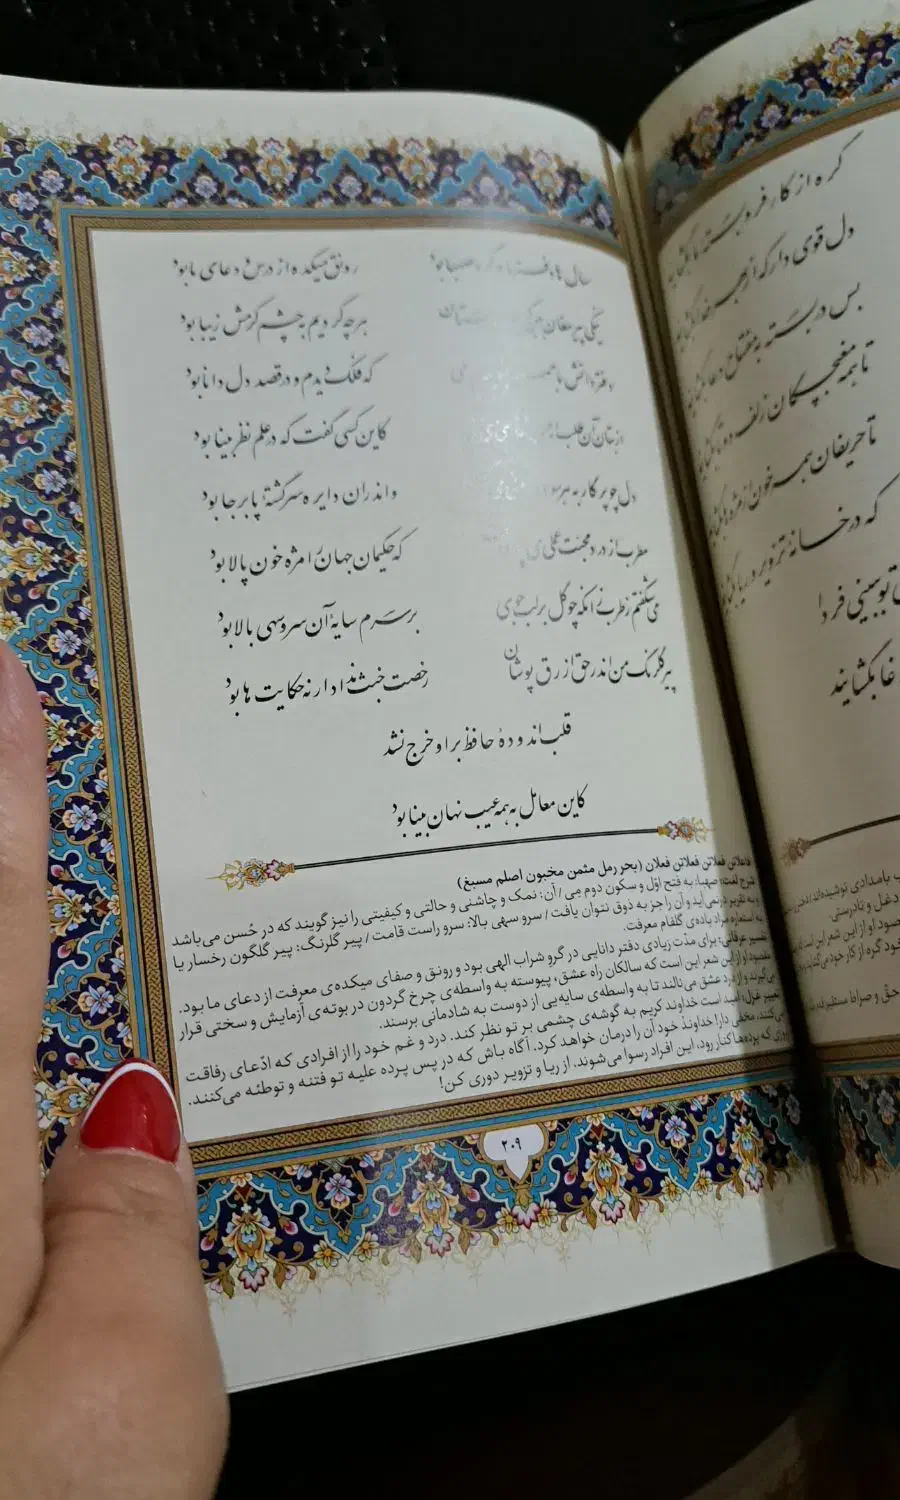 سال ها دفتر ما در گرو صهبا بود رونق میکده از درس و دعای ما بود
نیکی پیر مغان بین که هرچه کردیم به چشم کرمش زیبا بود
دفتر دانش ما جمله که فلک دیدم و در قصد دل دانا بود
از بتان آن طلب ار کاین کسی گفت که در علم نظر بینا بود
دل چو پرگار به هر سو واندران دایره سرگشتهٔ پابرجا بود
مطرب از درد محبت عملی می کـه حکیمان جهان را مژه خون پالا بود
می شکفتم ز طرب زانکه چو گل بر لب جوی بر سرم سایهٔ آن سرو سهی بالا بود
پیر گلرنگ من اندر حق ازرق پوشان رخصت خبث نداد ار نه حکایت ها بود
قلب اندودهٔ حافظ بر او خرج نشد
کاین معامل به همه عیب نهان بینا بود
فاعلاتن فعلاتن فعلاتن فعلان (بحر رمل مثمن مخبون اصلم مسبغ)
شرح لغت: صهبا: به فتح اوّل و سکون دوم می / آن: نمک و چاشنی و حالتی و کیفیتی را نیز گویند که در حُسن می‌باشد
و به تقریر درنمی‌آید و آن را جز به ذوق نتوان یافت / سرو سهی بالا: سرو راست قامت / پیر گلرنگ: پیر گلگون رخسار یا
به استعاره مراد باده‌ی گلفام معرفت.
تفسیر عرفانی: برای مدّت زیادی دفتر دانایی در گرو شراب الهی بود و رونق و صفای میکده‌ی معرفت از دعای ما بود.
مقصود او از این شعر این است که سالکان راه عشق، پیوسته به واسطه‌ی چرخ گردون در بوته‌ی آزمایش و سختی قرار
می‌گیرند و از درد عشق می‌نالند تا به واسطه‌ی سایه‌یی از دوست به شادمانی برسند.
تعبیر غزل: امید است خداوند کریم به گوشه‌ی چشمی بر تو نظر کند. درد و غم خود را از افرادی که ادّعای رفاقت
می‌کنند، مخفی دار! خداوند خود آن را درمان خواهد کرد. آگاه باش که در پس پرده علیه تو فتنه و توطئه می‌کنند.
روزی که پرده‌ها کنار رود، این افراد رسوا می‌شوند. از ریا و تزویر دوری کن!
۲۰۹
گره از کار فروبسته
دل قوی دار که از بهر
بس در بسته به مفتاح دعا
تا همه مغبچگان زلف دوتا
تا حریفان همه خون از مژه ها
که در خانهٔ تزویر و ریا
تو ببینی فردا
بگشایند